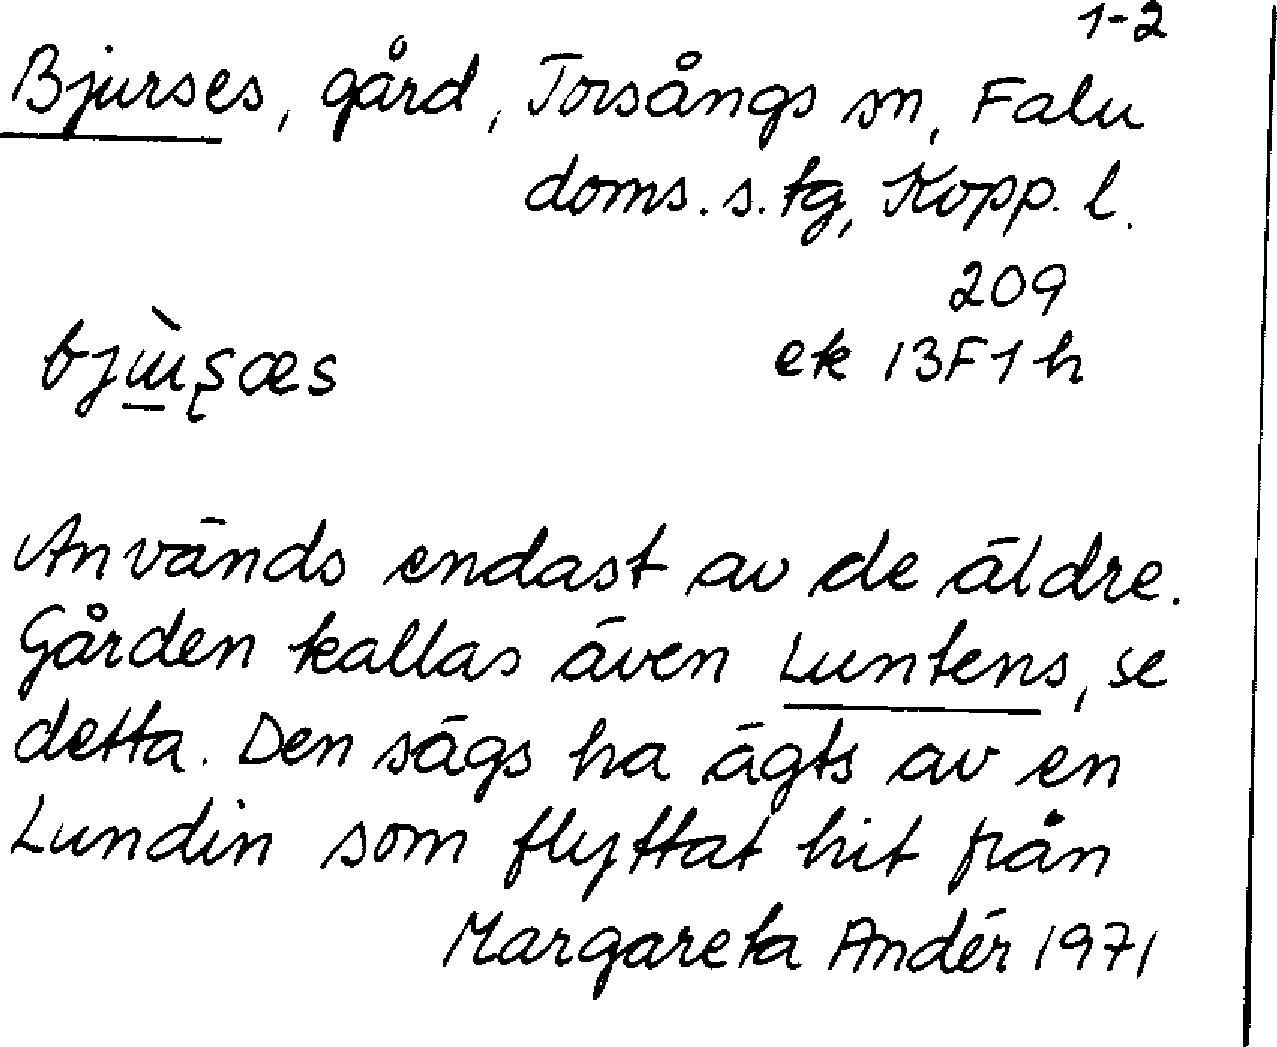 1-2
Bjurses, gård, Torsångs sn, Falu
doms. s. tg, Kopp. l.
209
ek 13F1h
Används endast av de äldre.
Gården kallas även Luntens, se
detta. Den sägs ha ägts av en
Lundin som flyttat hit från
Margareta Andér 1971